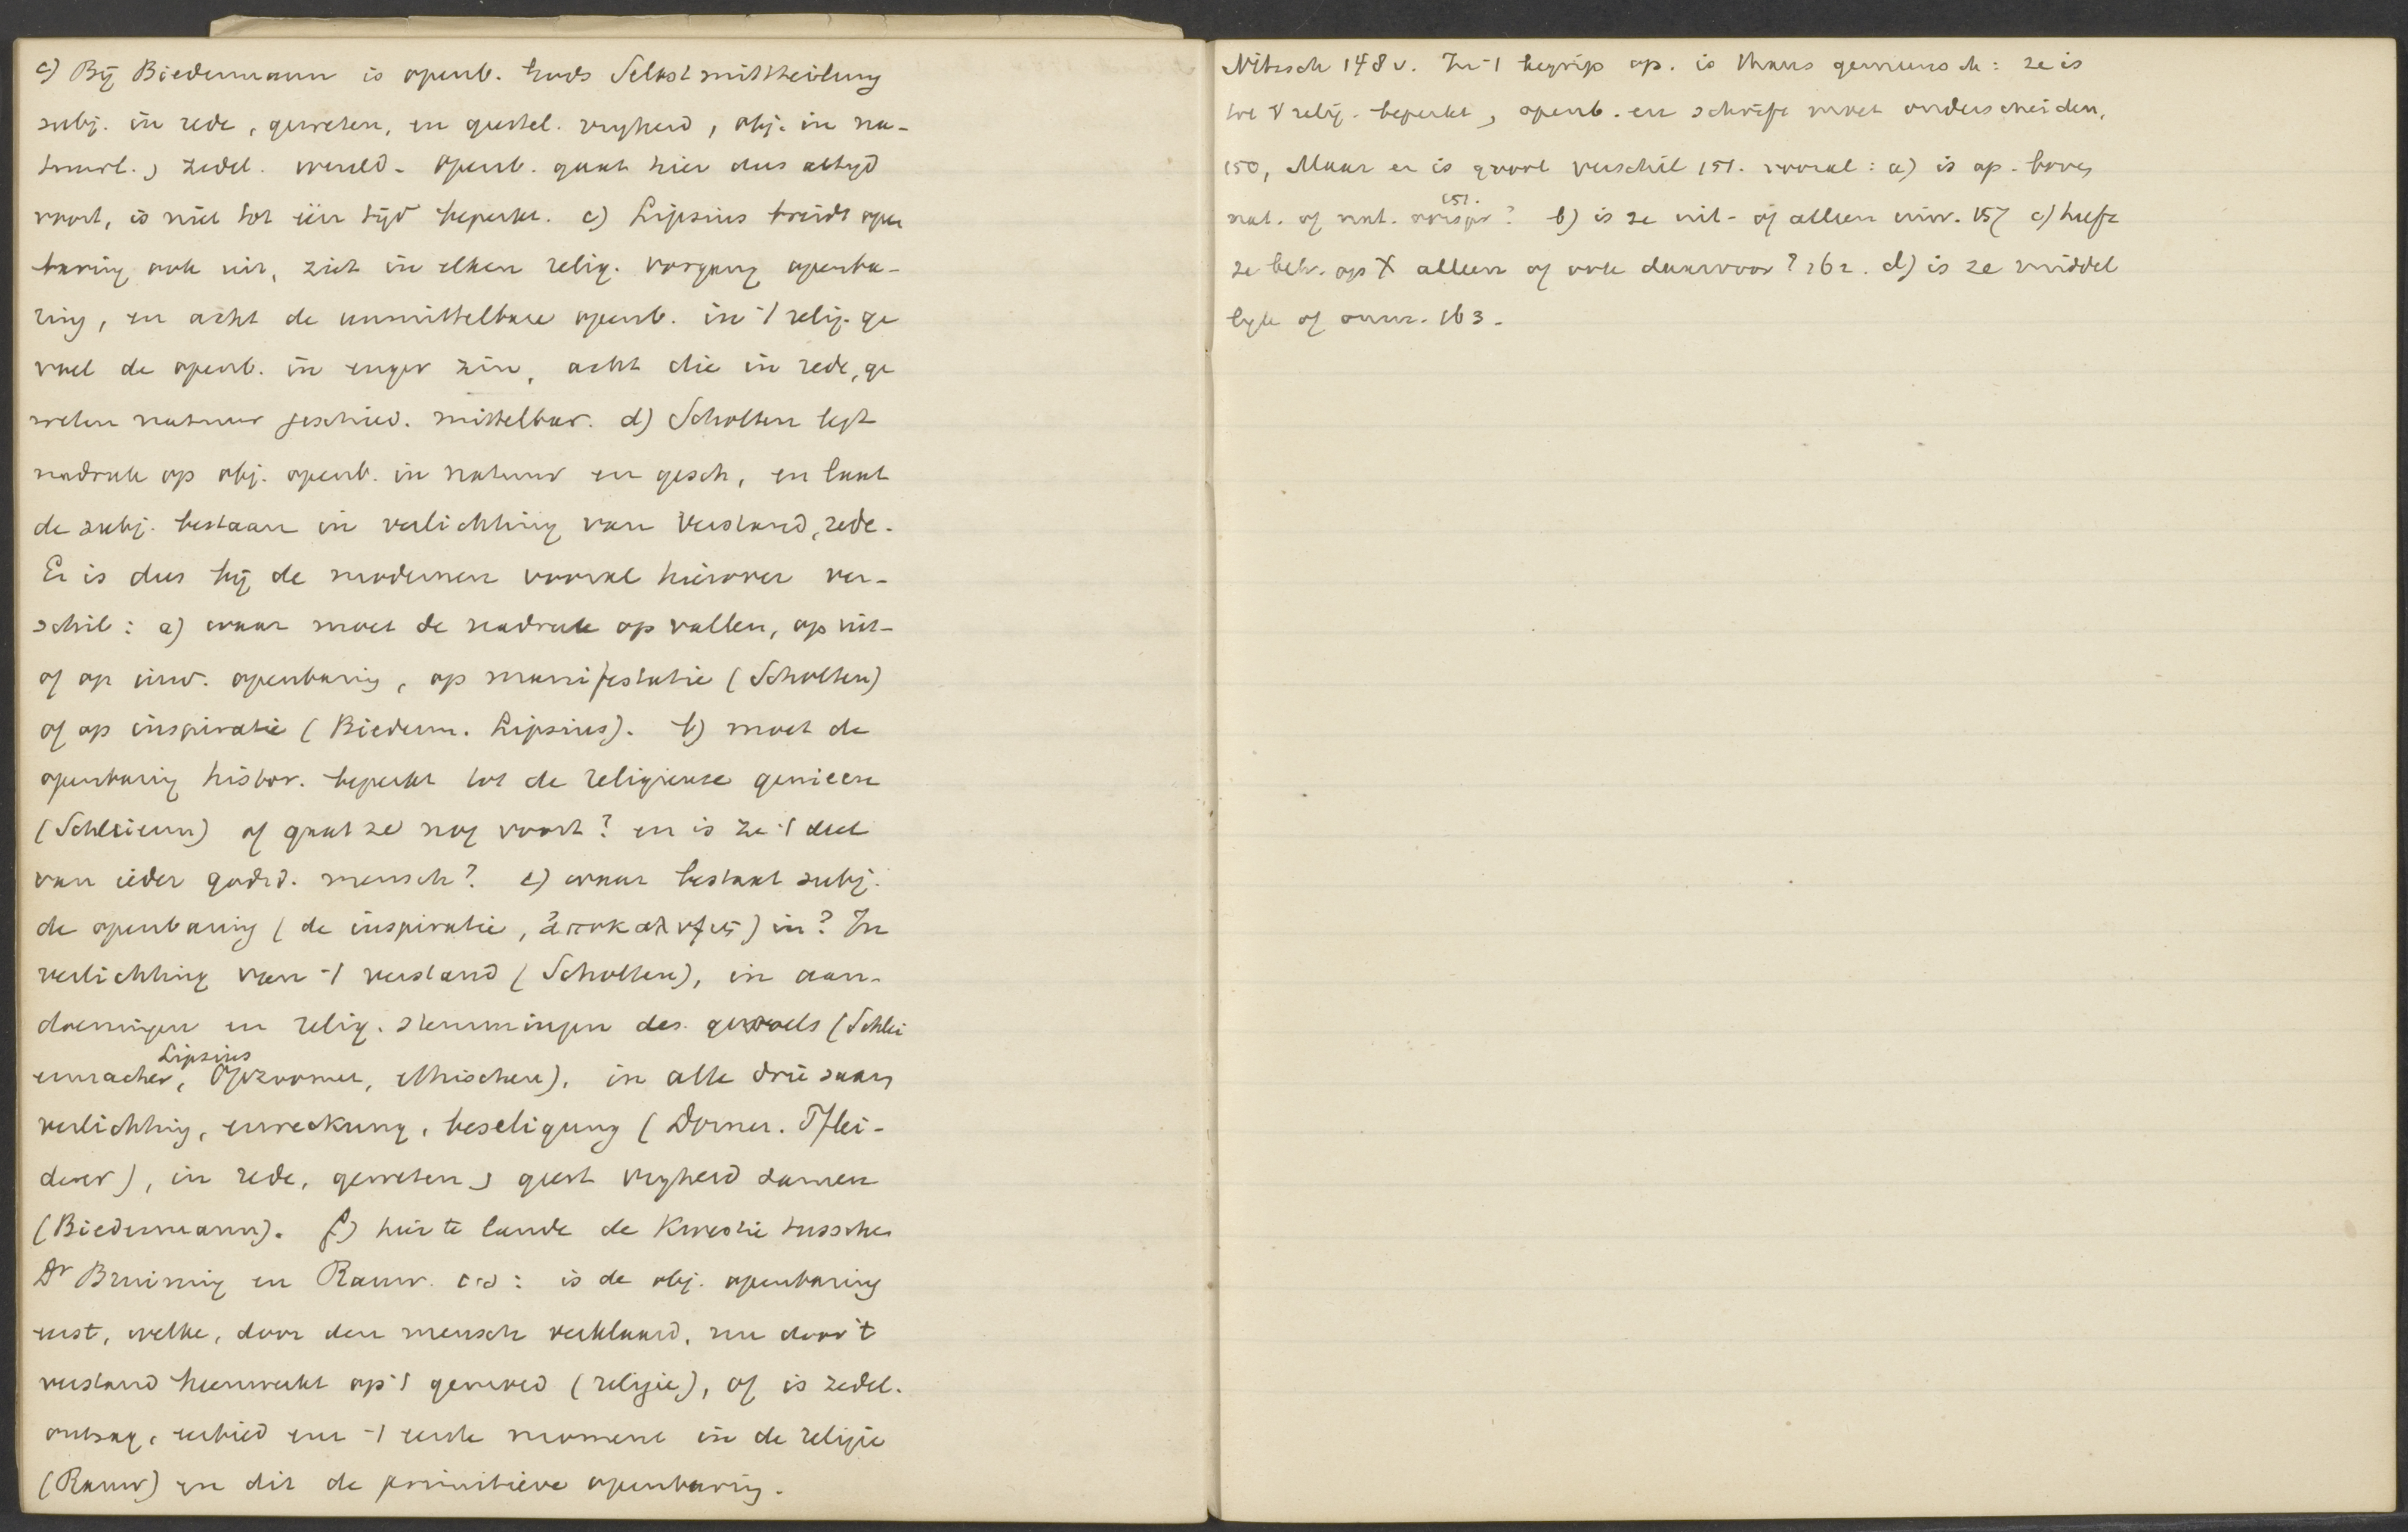 c) Bij Biedermann is openb. Gods Selbstmittheilung
subj. in rede, geweten, en geestel. vryheid, obj. in na-
tuurl., zedel. wereld. Openb. gaat hier dus altyd
voort, is niet tot één tijd beperkt. c) Lipsius breidt open
baring ook uit, ziet in elken relig. vorgang openba-
ring, en acht de unmittelbare openb. in 't relig. ge
voel de openb. in enger zin, acht die in rede, ge
weten natuur geschied. mittelbar. d) Scholten legt
nadruk op obj. openb. in natuur en gesch, en laat
de subj. bestaan in verlichting van verstand, rede.
Er is dus bij de modernen vooral hierover ver-
schil: a) waar moet de nadruk op vallen, op uit-
of op inw. openbaring, op manifestatie (Scholten)
of op inspiratie (Biederm. Lipsius). b) moet de
openbaring histor. beperkt tot de religieuse genieen
(Schleierm) of gaat ze nog voort? en is ze 't deel
van ieder godsd. mensch? e) waar bestaat subj.
de openbaring (de inspiratie, ἀποκαλυψις) in? In
verlichting van 't verstand (Scholten), in aan-
doeningen en relig. stemmingen des gevoels (Schlei
ermacher, Lipsius Opzoomer, Ethischen), in alle drie saam
verlichting, erweckung, beseligung (Dorner. Pflei-
derer), in rede, geweten, geest vryheid samen
(Biedermann). f) hier te lande de kwestie tusschen
Dr Bruining en Rauw. c.s: is de obj. openbaring
eerst, welke, door den mensch verklaard, nu door 't
verstand heenwerkt op 't gemoed (religie), of is zedel.
ontzag, eerbied enz 't eerste moment in de religie
(Rauw) en dit de primitieve openbaring.
Nitzsch 148 v. In 't begrip op. is thans gemeensch: ze is
tot 't relig. beperkt, openb. en schrift moet onderscheiden,
150, Maar er is groot verschil 151. vooral: a) is op. boven
nat. of nat. oorspr? 151. b) is ze uit- of alleen inw. 157 c) heeft
ze betr. op X alleen of ook daarvoor? 162. d) is ze middel
lyk of onm. 163.